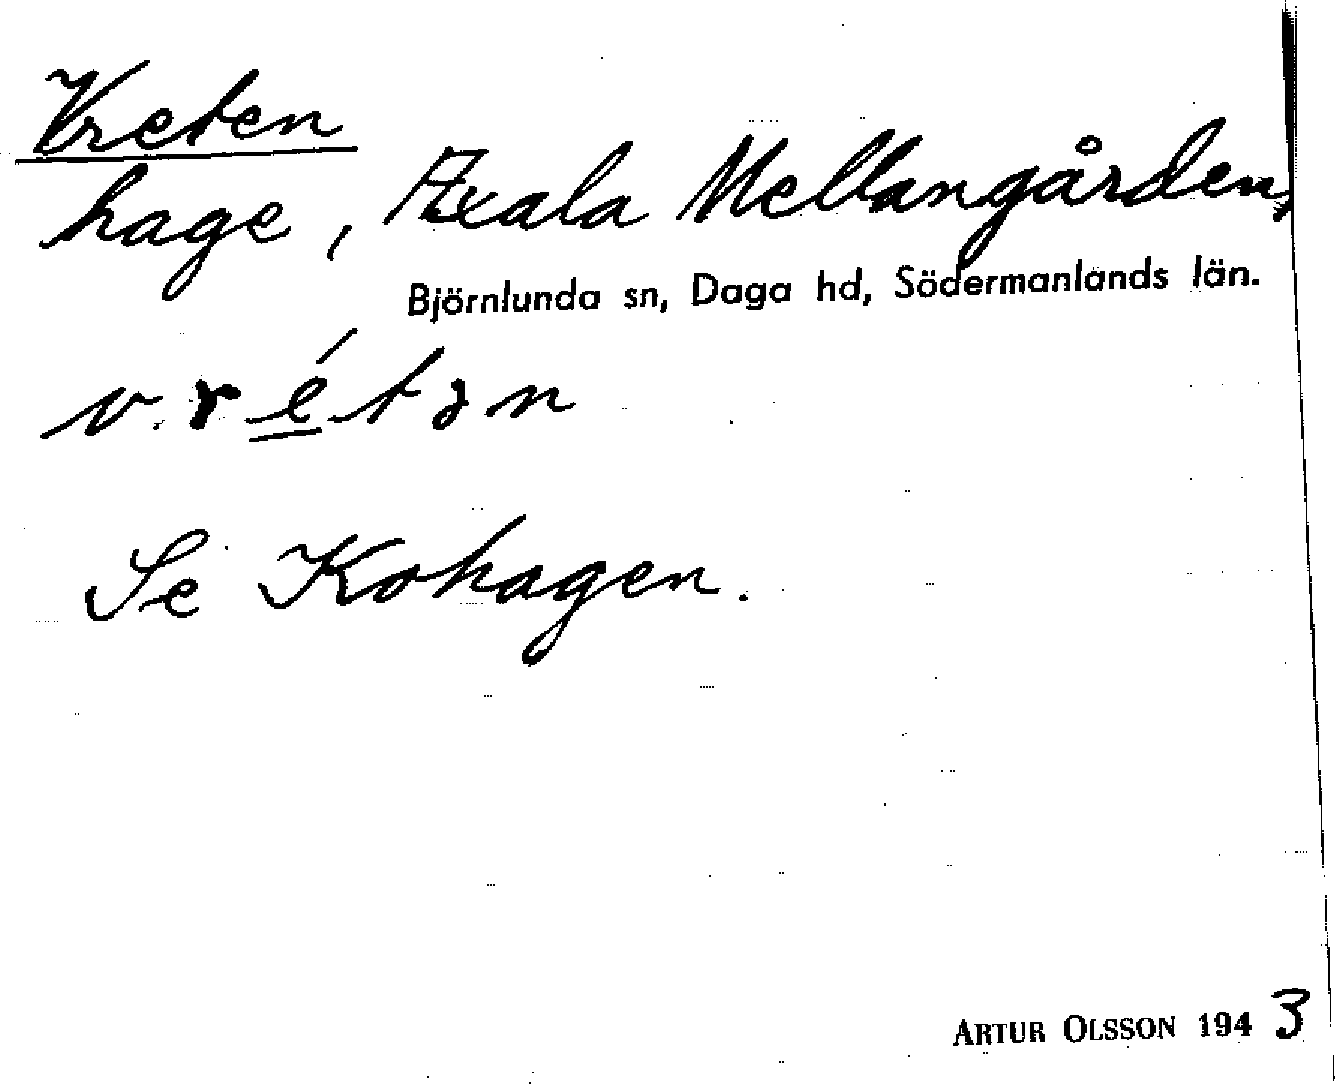 Vreten
hage, Axala Mellangården,
Björnlunda sn, Daga hd, Södermanlands län.
v. r é t ə n
Se Kohagen.
ARTUR OLSSON 1943